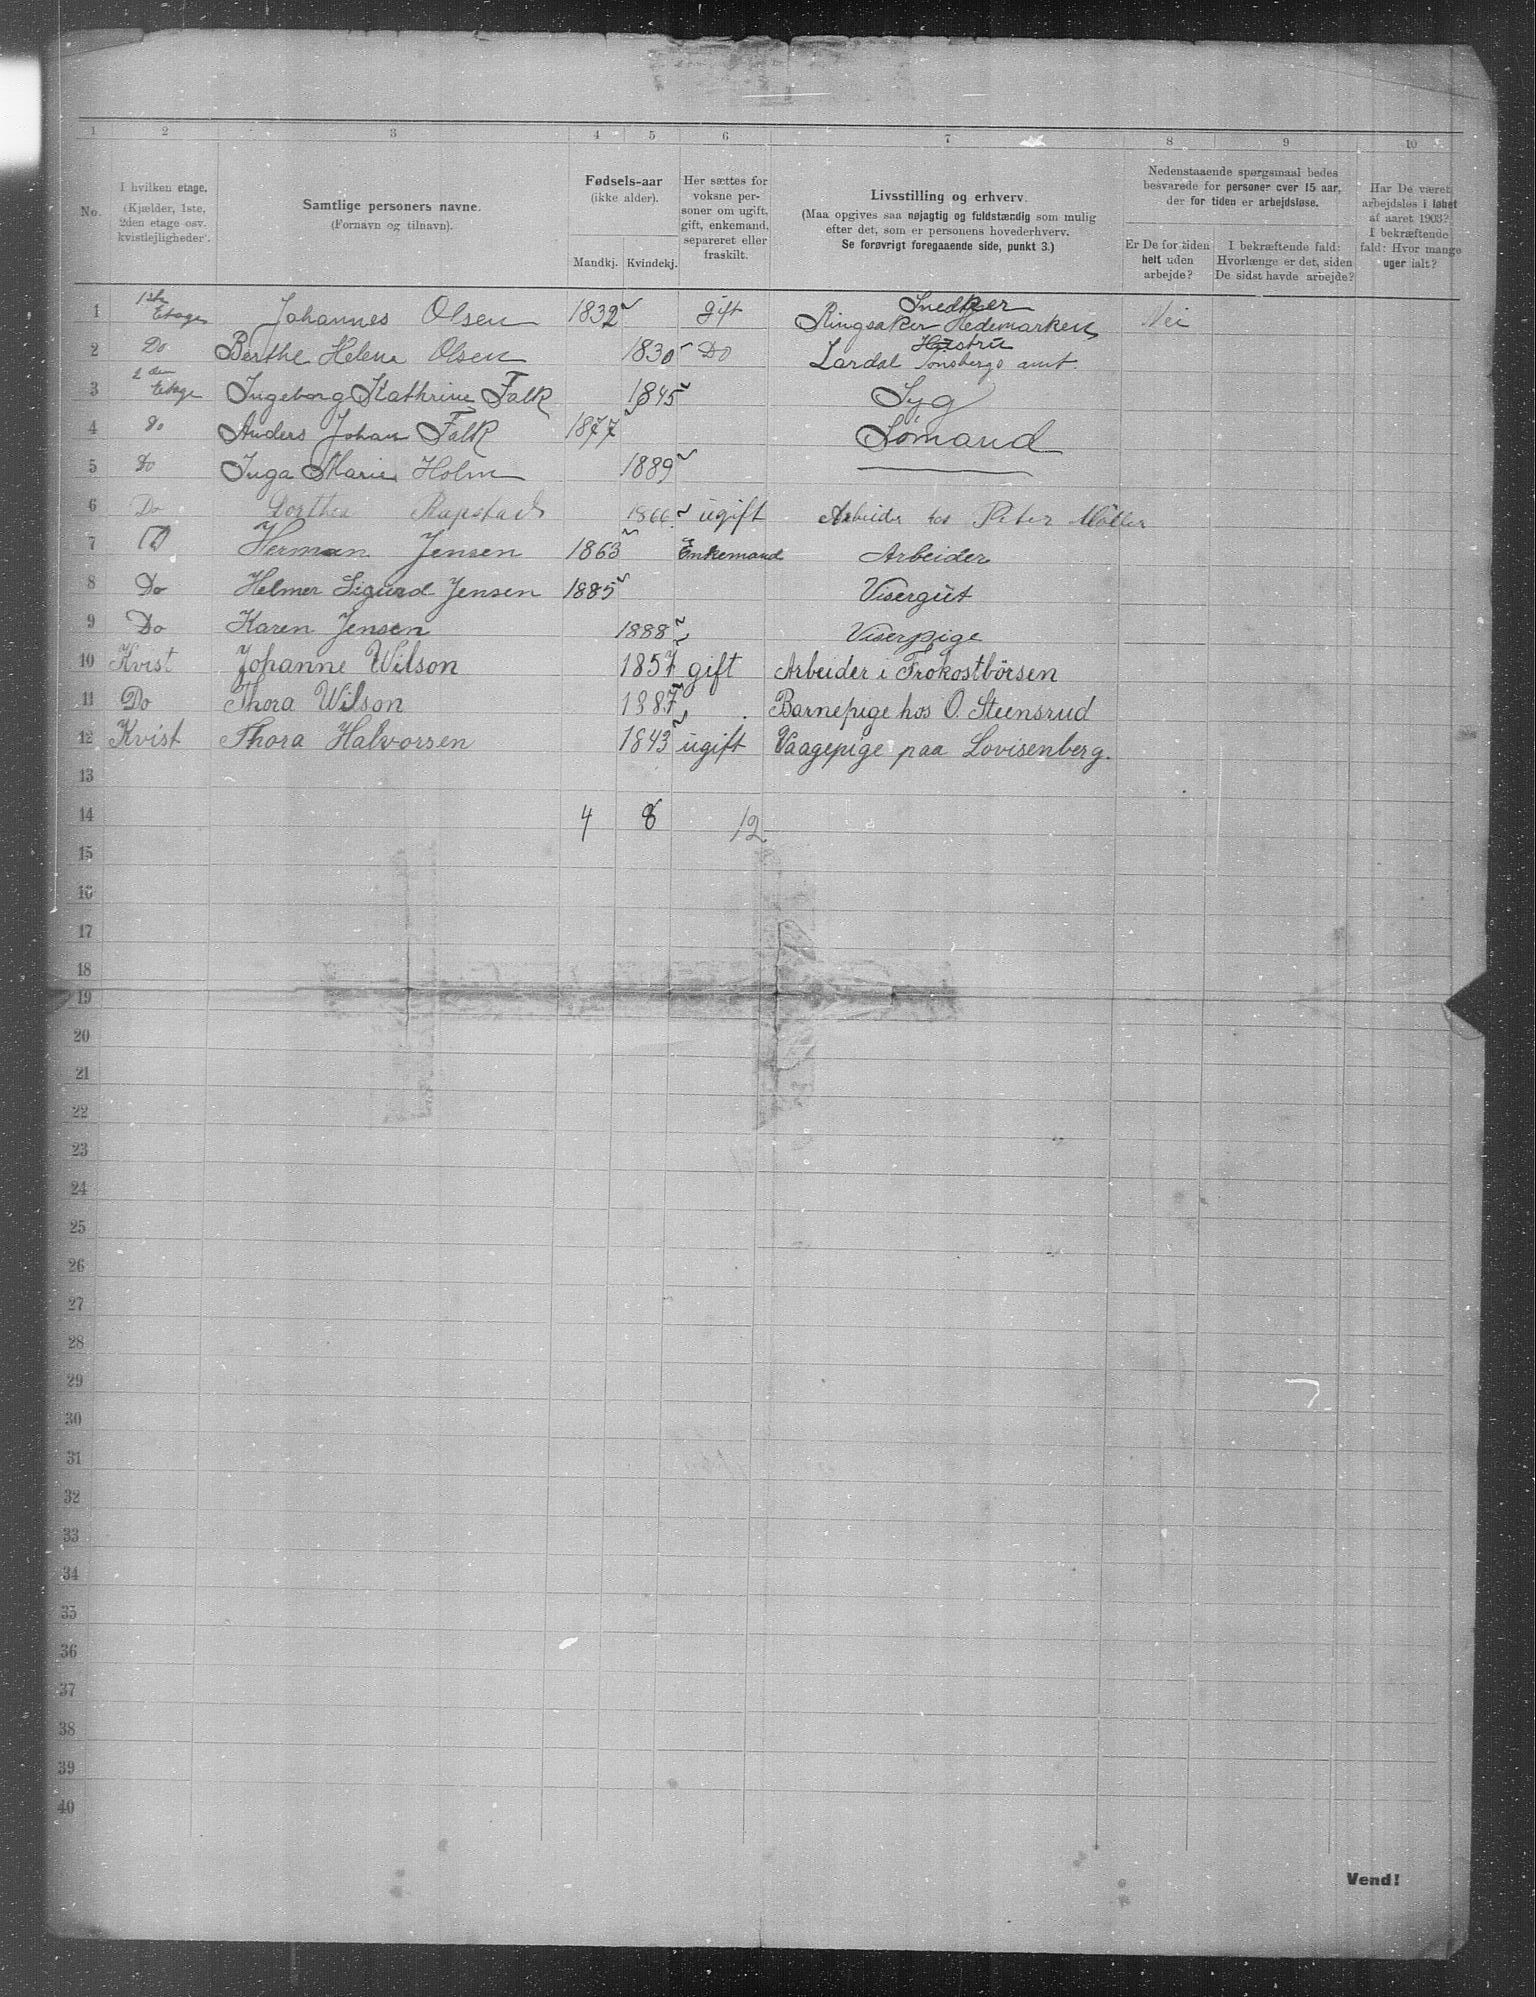 1 2 3 4 5 6 7 8 9 10
No.
I hvilken etage.
(Kjælder, 1ste,
2den etage osv.
kvistlejligheder).
Samtlige personers navne.
(Fornavn og tilnavn).
Fødsels-aar
(ikke alder).
Mandkj. Kvindekj.
Her sættes for
voksne per-
soner om ugift,
gift, enkemand,
separeret eller
fraskilt.
Livsstilling og erhverv.
(Maa opgives saa nøjagtig og fuldstændig som mulig
efter det, som er personens hovederhverv.
Se forøvrigt foregaaende side, punkt 3.)
Nedenstaaende spørgsmaal bedes
besvarede for personer over 15 aar,
der for tiden er arbejdsløse.
Er De for tiden
helt uden
arbejde?
I bekræftende fald:
Hvorlænge er det, siden
De sidst havde arbejde?
Har De været
arbejdsløs i løbet
af aaret 1903?
I bekræftende
fald: Hvor mange
uger ialt?
1 1ste Etage Johannes Olsen 1832 gift Snedker Ringsaker Hedemarken Nei
2 Do Berthe Helene Olsen 1830 Do Hustru Lardal Tønsbergs amt.
3 2den Etage Ingeborg Kathrine Falk 1845 Syg
4 Do Anders Johan Falk 1877 Sømand
5 Do Inga Marie Holm 1889
6 Do Dorthea 1866 ugift Arbeider hos Peter Møller
7 Do Herman Jensen 1863 Enkemand Arbeider
8 Do Helmer Sigurd Jensen 1885 Visergut
9 Do Karen Jensen 1888 Viserpige
10 Kvist Johanne Wilson 1857 gift Arbeider i Frokostbörsen
11 Do Thora Wilson 1887 Barnepige hos O. Steensrud
12 Kvist Thora Halvorsen 1843 ugift Vaagepige paa Lovisenberg.
13
14 4 8 12
15
16
17
18
19
20
21
22
23
24
25
26
27
28
29
30
31
32
33
34
35
36
37
38
39
40
Vend!